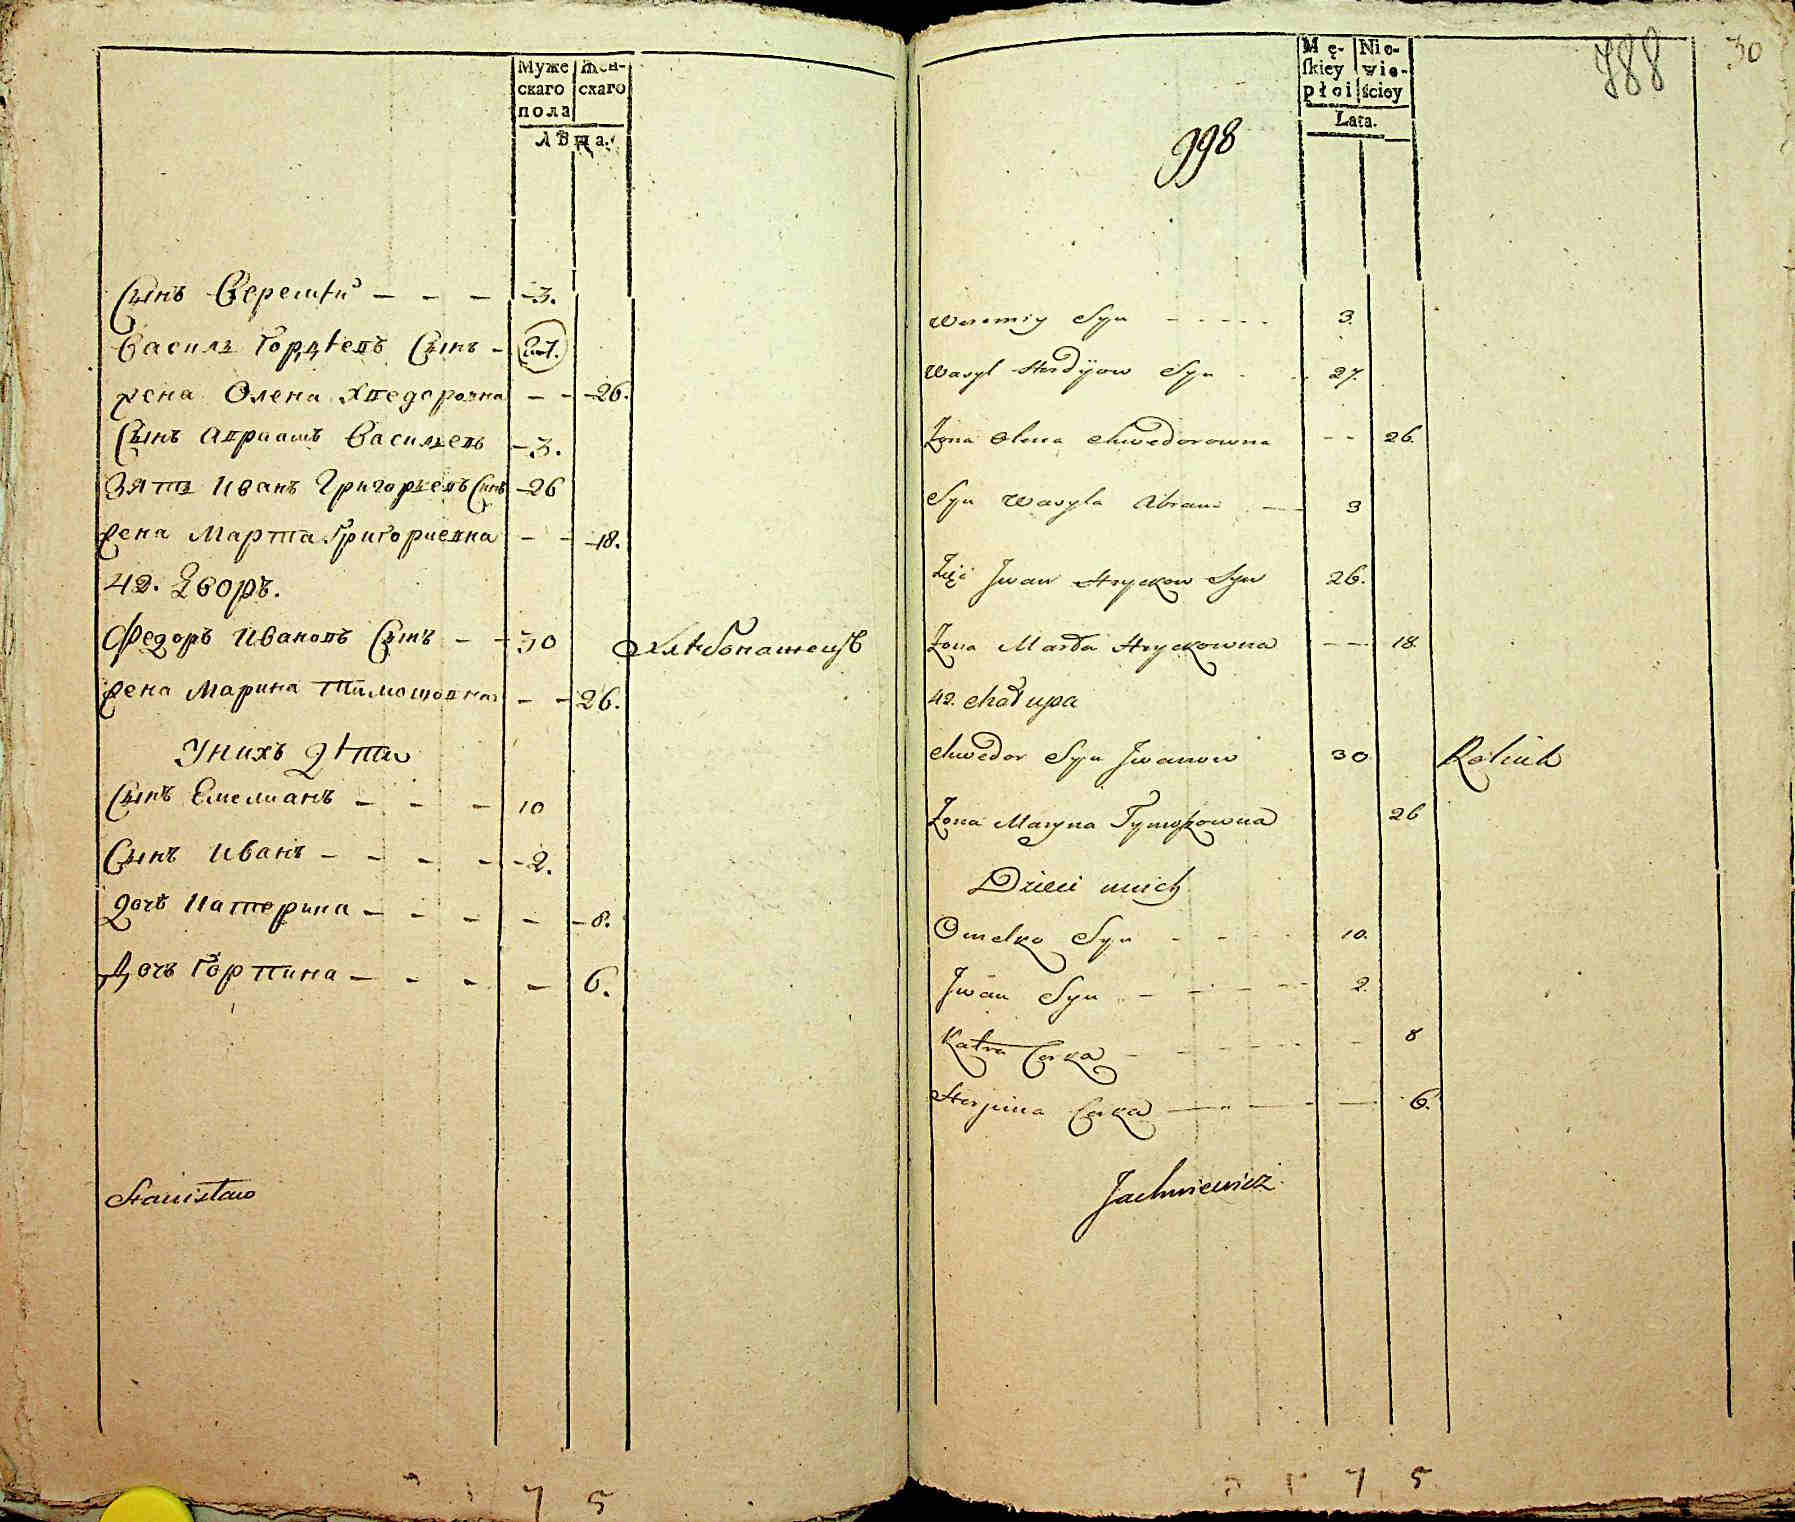 Муже
скаго
пола
Жен-
скаго
Лѣта.
Сынъ Веремѣй - - - 3.
Василь Гордѣевъ Сынъ - 27.
Жена Олена Хведоровна - - 26.
Сынъ Авраамъ Васильевъ - 3.
Зять Иванъ Григорьевъ Сынъ - 26
Жена Марта Григориевна - - 18.
42. Дворъ.
Федоръ Ивановъ Сынъ - - 30 Хлѣбопашецъ
Жена Марина Тимошовна - - 26.
У нихъ дѣти
Сынъ Емелианъ - - - 10
Сынъ Иванъ - - - - 2.
Дочь Катерина - - - - - 8.
Дочъ Горпина - - - - 6.
Stanisław
7 5
Mę-
skiey
płci
Nie-
wie-
ściey
Lata.
998
788
30
Weremiy Syn - - - - - 3.
Wasyl Hordÿow Syn - - 27.
Żona Olena Chwedorowna - - 26.
Syn Wasyla Abram - - 3
Zięć Jwan Hryckow Syn 26.
Żona Marta Hryckowna - - 18.
42. Chałupa
Chwedor Syn Jwanow 30 Rolnik
Żona Maryna Tymoszkowna 26
Dzieci u nich
Omelko Syn - - - 10.
Jwan Syn - - - - 2.
Katra Corka - - - - - - 8
Horpina Corka - - - - - 6.
Jachniewicz
7 5